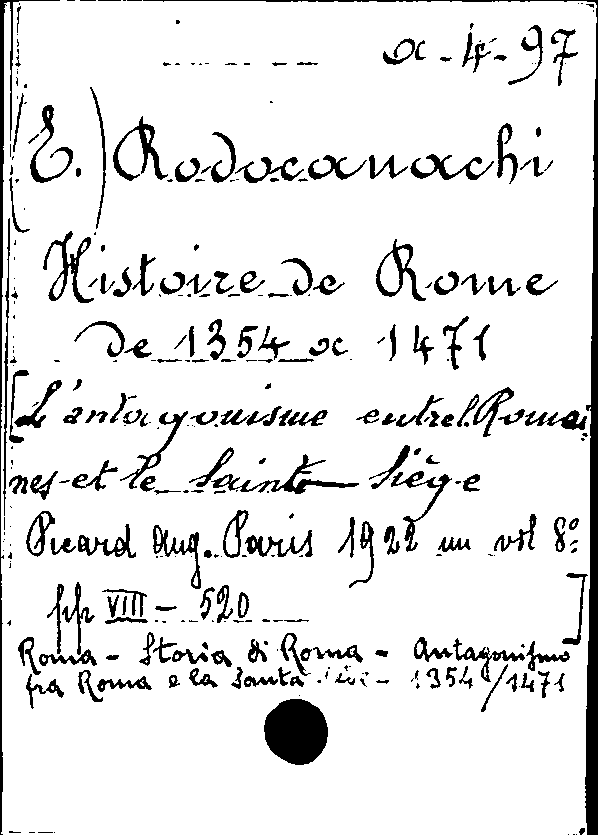 a-4-97
(E.) Rodocanachi
Histoire de Rome
de 1354 a 1471
[L'antagonisme entre l. Romai
nes et le Saint-Siège
Picard Aug. Paris 1922 un vol 8º
pp VIII - 520 ]
Roma - Storia di Roma - Antagonismo
fra Roma e la Santa Sede - 1354/1471